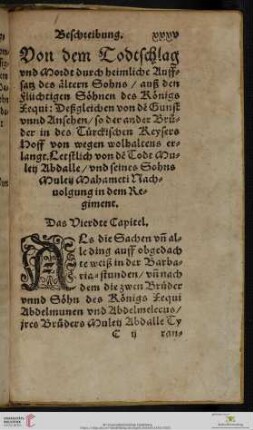 Beschreibung. xxxv
Von dem Todtschlag
vnd Mordt durch heimliche Auff-
satz des ältern Sohns / auß den
Flüchtigen Söhnen des Königs
Xequi: Deßgleichen von dē Gunst
vnnd Ansehen / so der ander Brü-
der in des Türckischen Keysers
Hoff von wegen wolhaltens er-
langt. Letstlich von dē Todt Mu-
ley Abdalle / vnd seines Sohns
Muley Mahameti Nach-
uolgung in dem Re-
giment.
Das Vierdte Capitel.
ALs die Sachen vñ al-
le ding auff obgedach
te weiß in der Barba-
ria stunden / vñ nach
dem die zwen Brüder
vnnd Söhn des Königs Xequi
Abdelmunen vnd Abdelmelecus /
jres Brůders Muley Abdalle Ty
C ij ran-